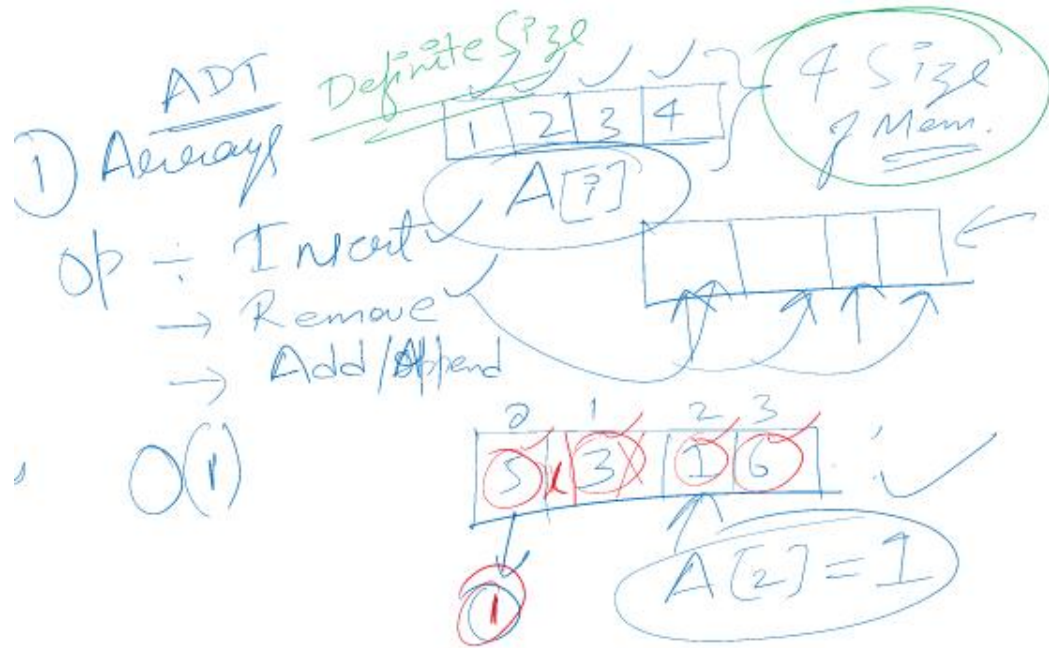 ADT
Definite Size
1) Arrays
1 2 3 4
4 Size
of Mem.
A[i]
Op ÷ Insert
→ Remove
→ Add/Append
O(1)
0 1 2 3
5 3 1 6
1
A[2]=1